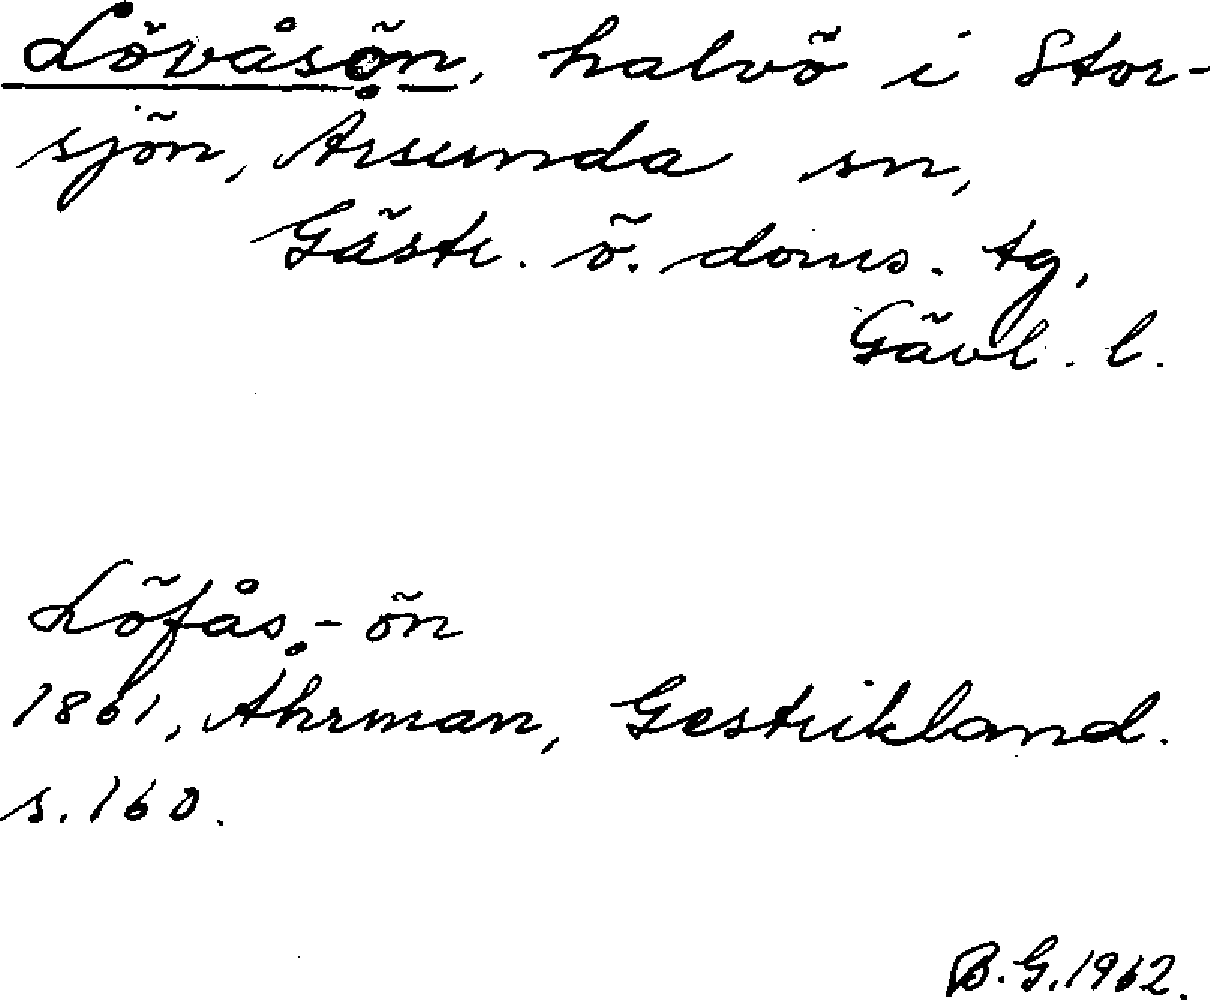 Lövåsön, halvö i Stor-
sjön, Årsunda sn,
Gästr. ö. doms. tg,
Gävl. l.
Löfås-ön
1861, Åhrman, Gestrikland.
s. 160.
B. G. 1962.